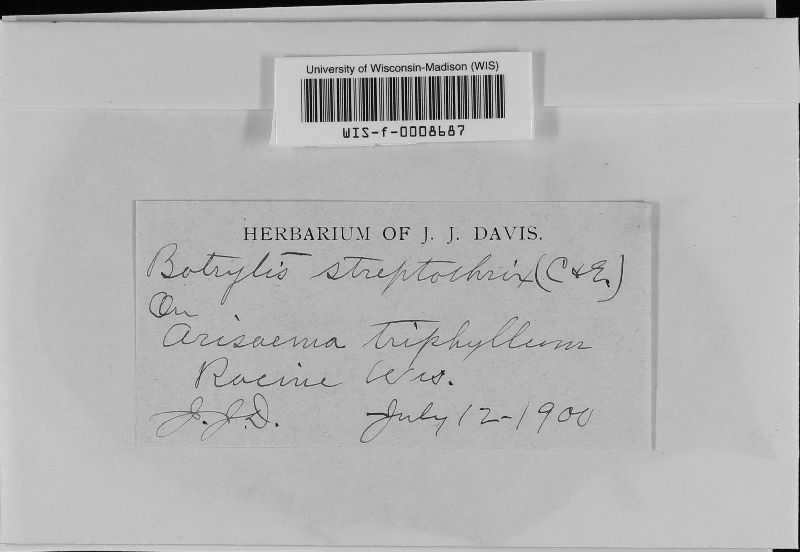 University of Wisconsin-Madison (WIS)
WIS-f-0008687
HERBARIUM OF J. J. DAVIS.
Botrytis streptothrix (C & E.)
On
Arisaema triphyllum
Racine Wis.
J. J. D. July 12 - 1900